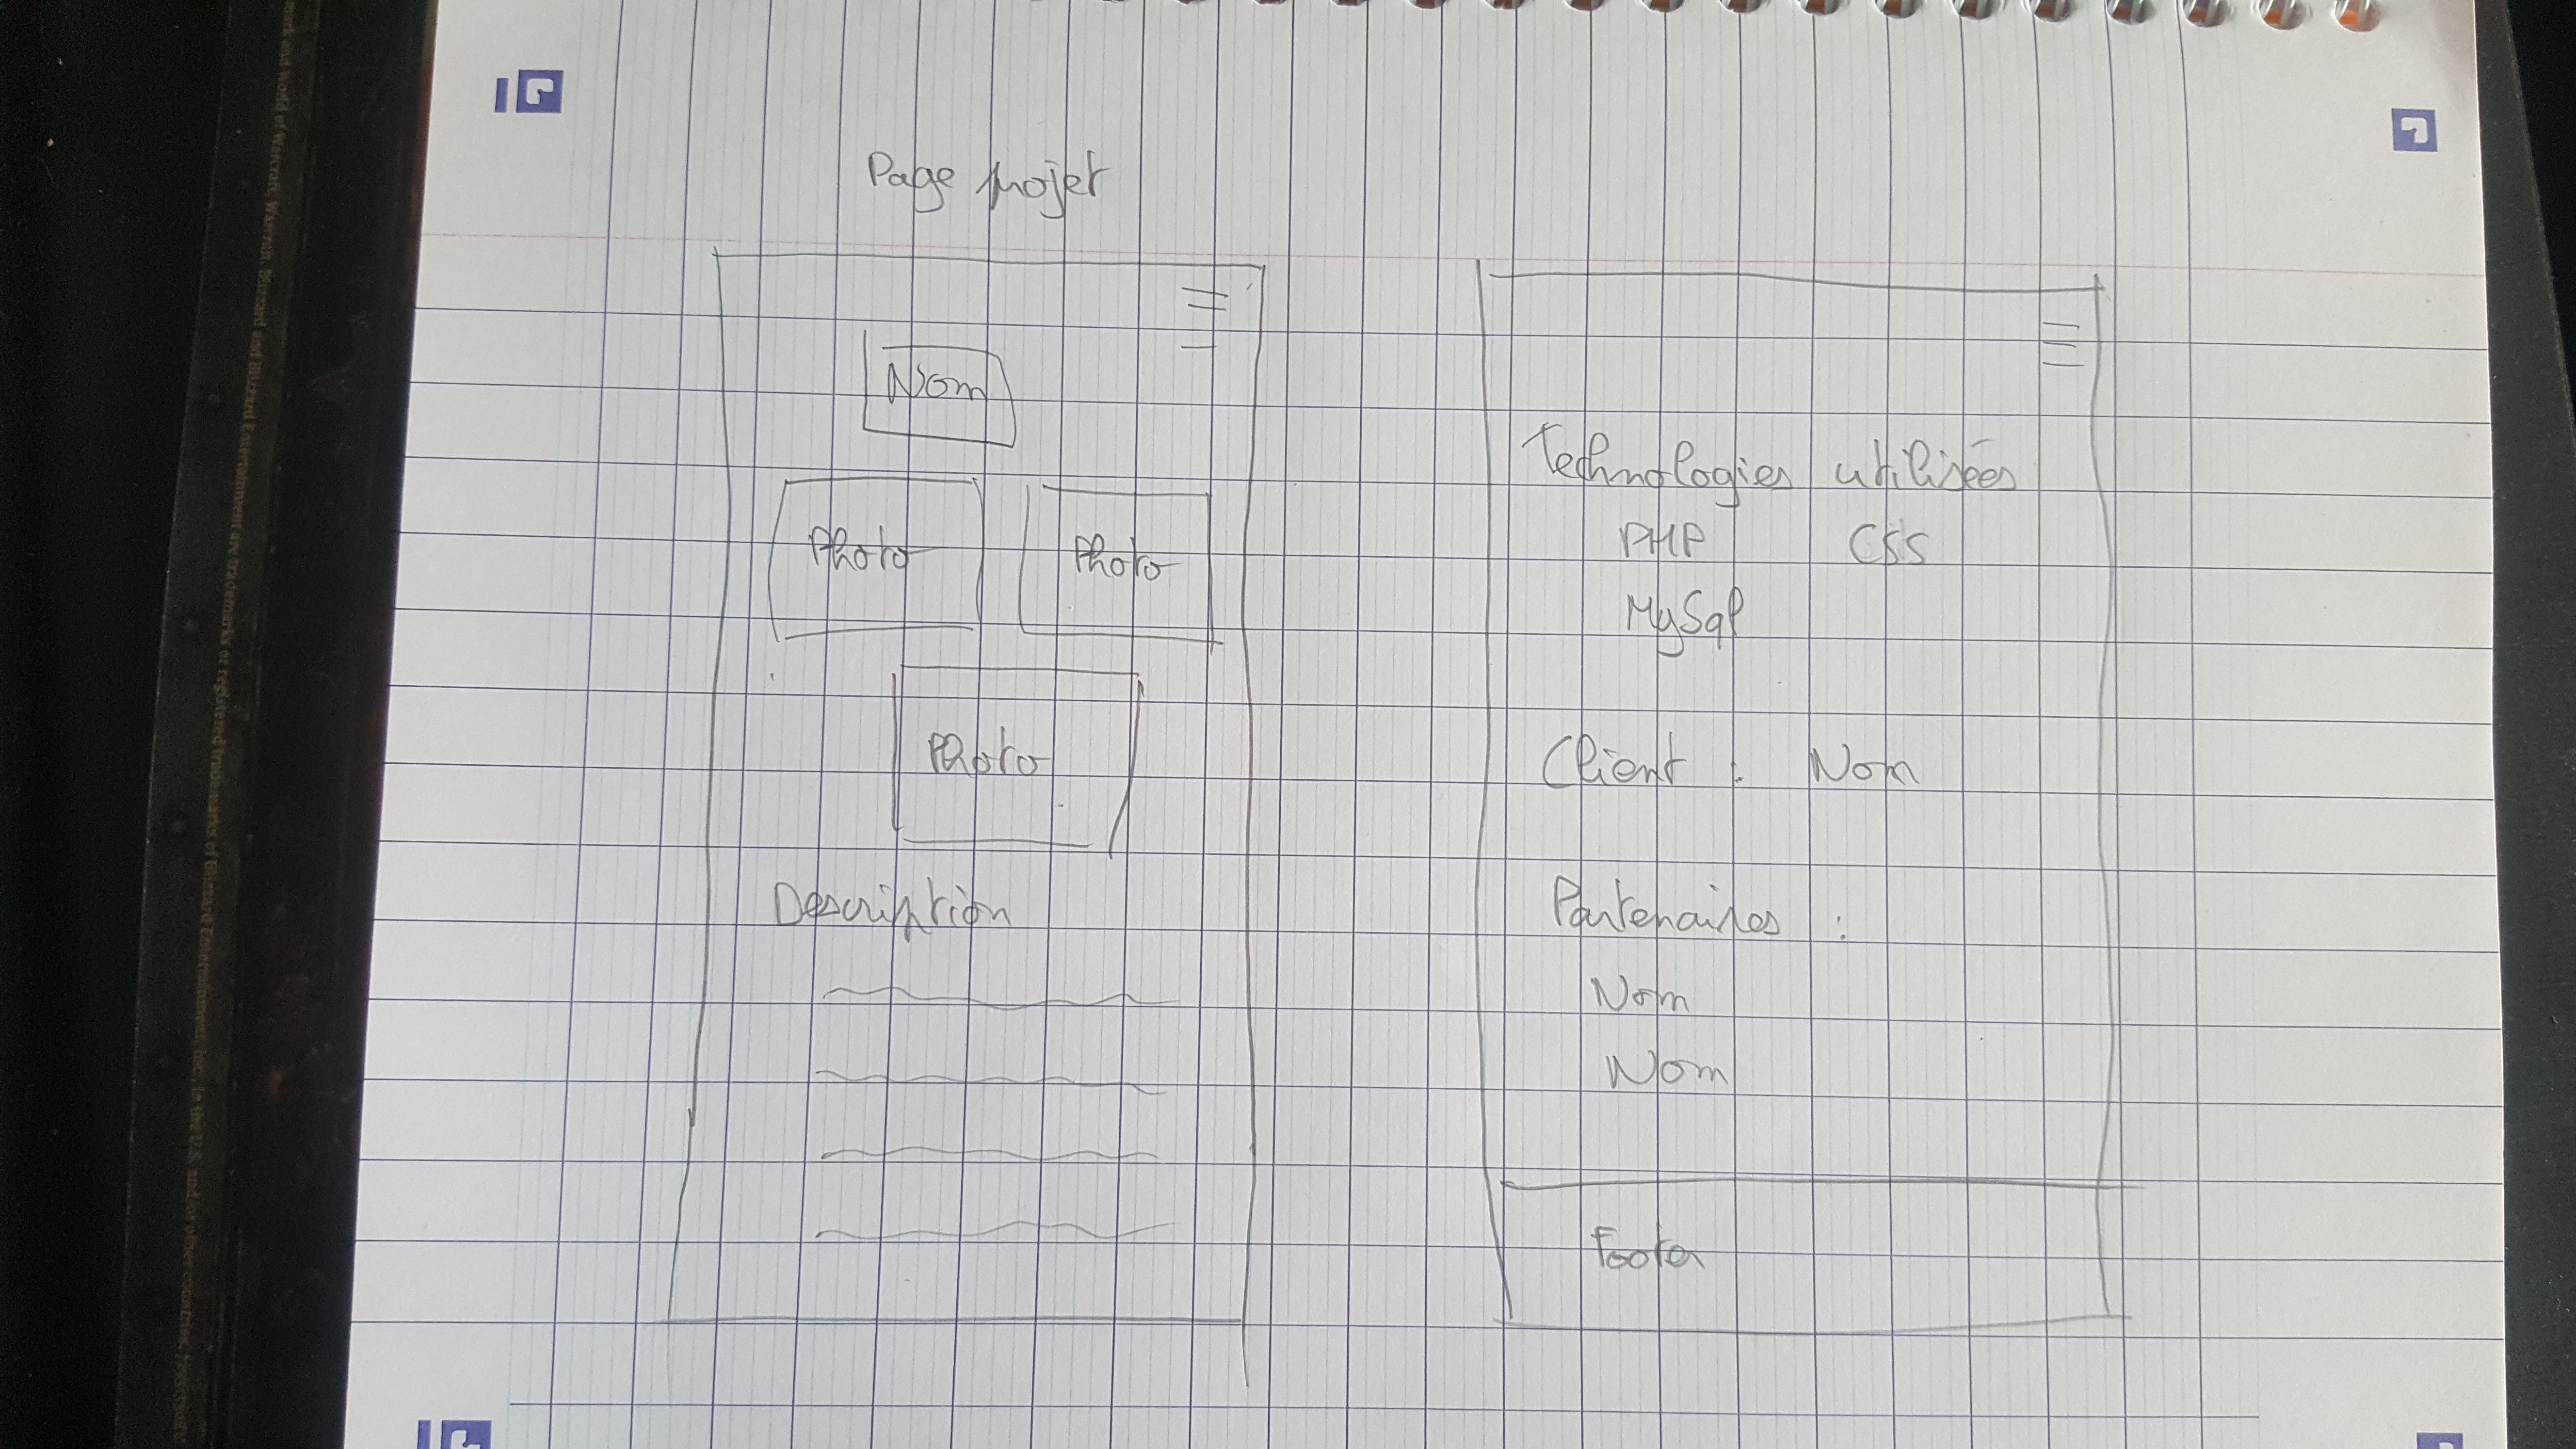 Page projet
Nom
Photo Photo
Photo
Description
Technologies utilisées
PHP CSS
MySql
Client : Nom
Partenaires :
Nom
Nom
Footer